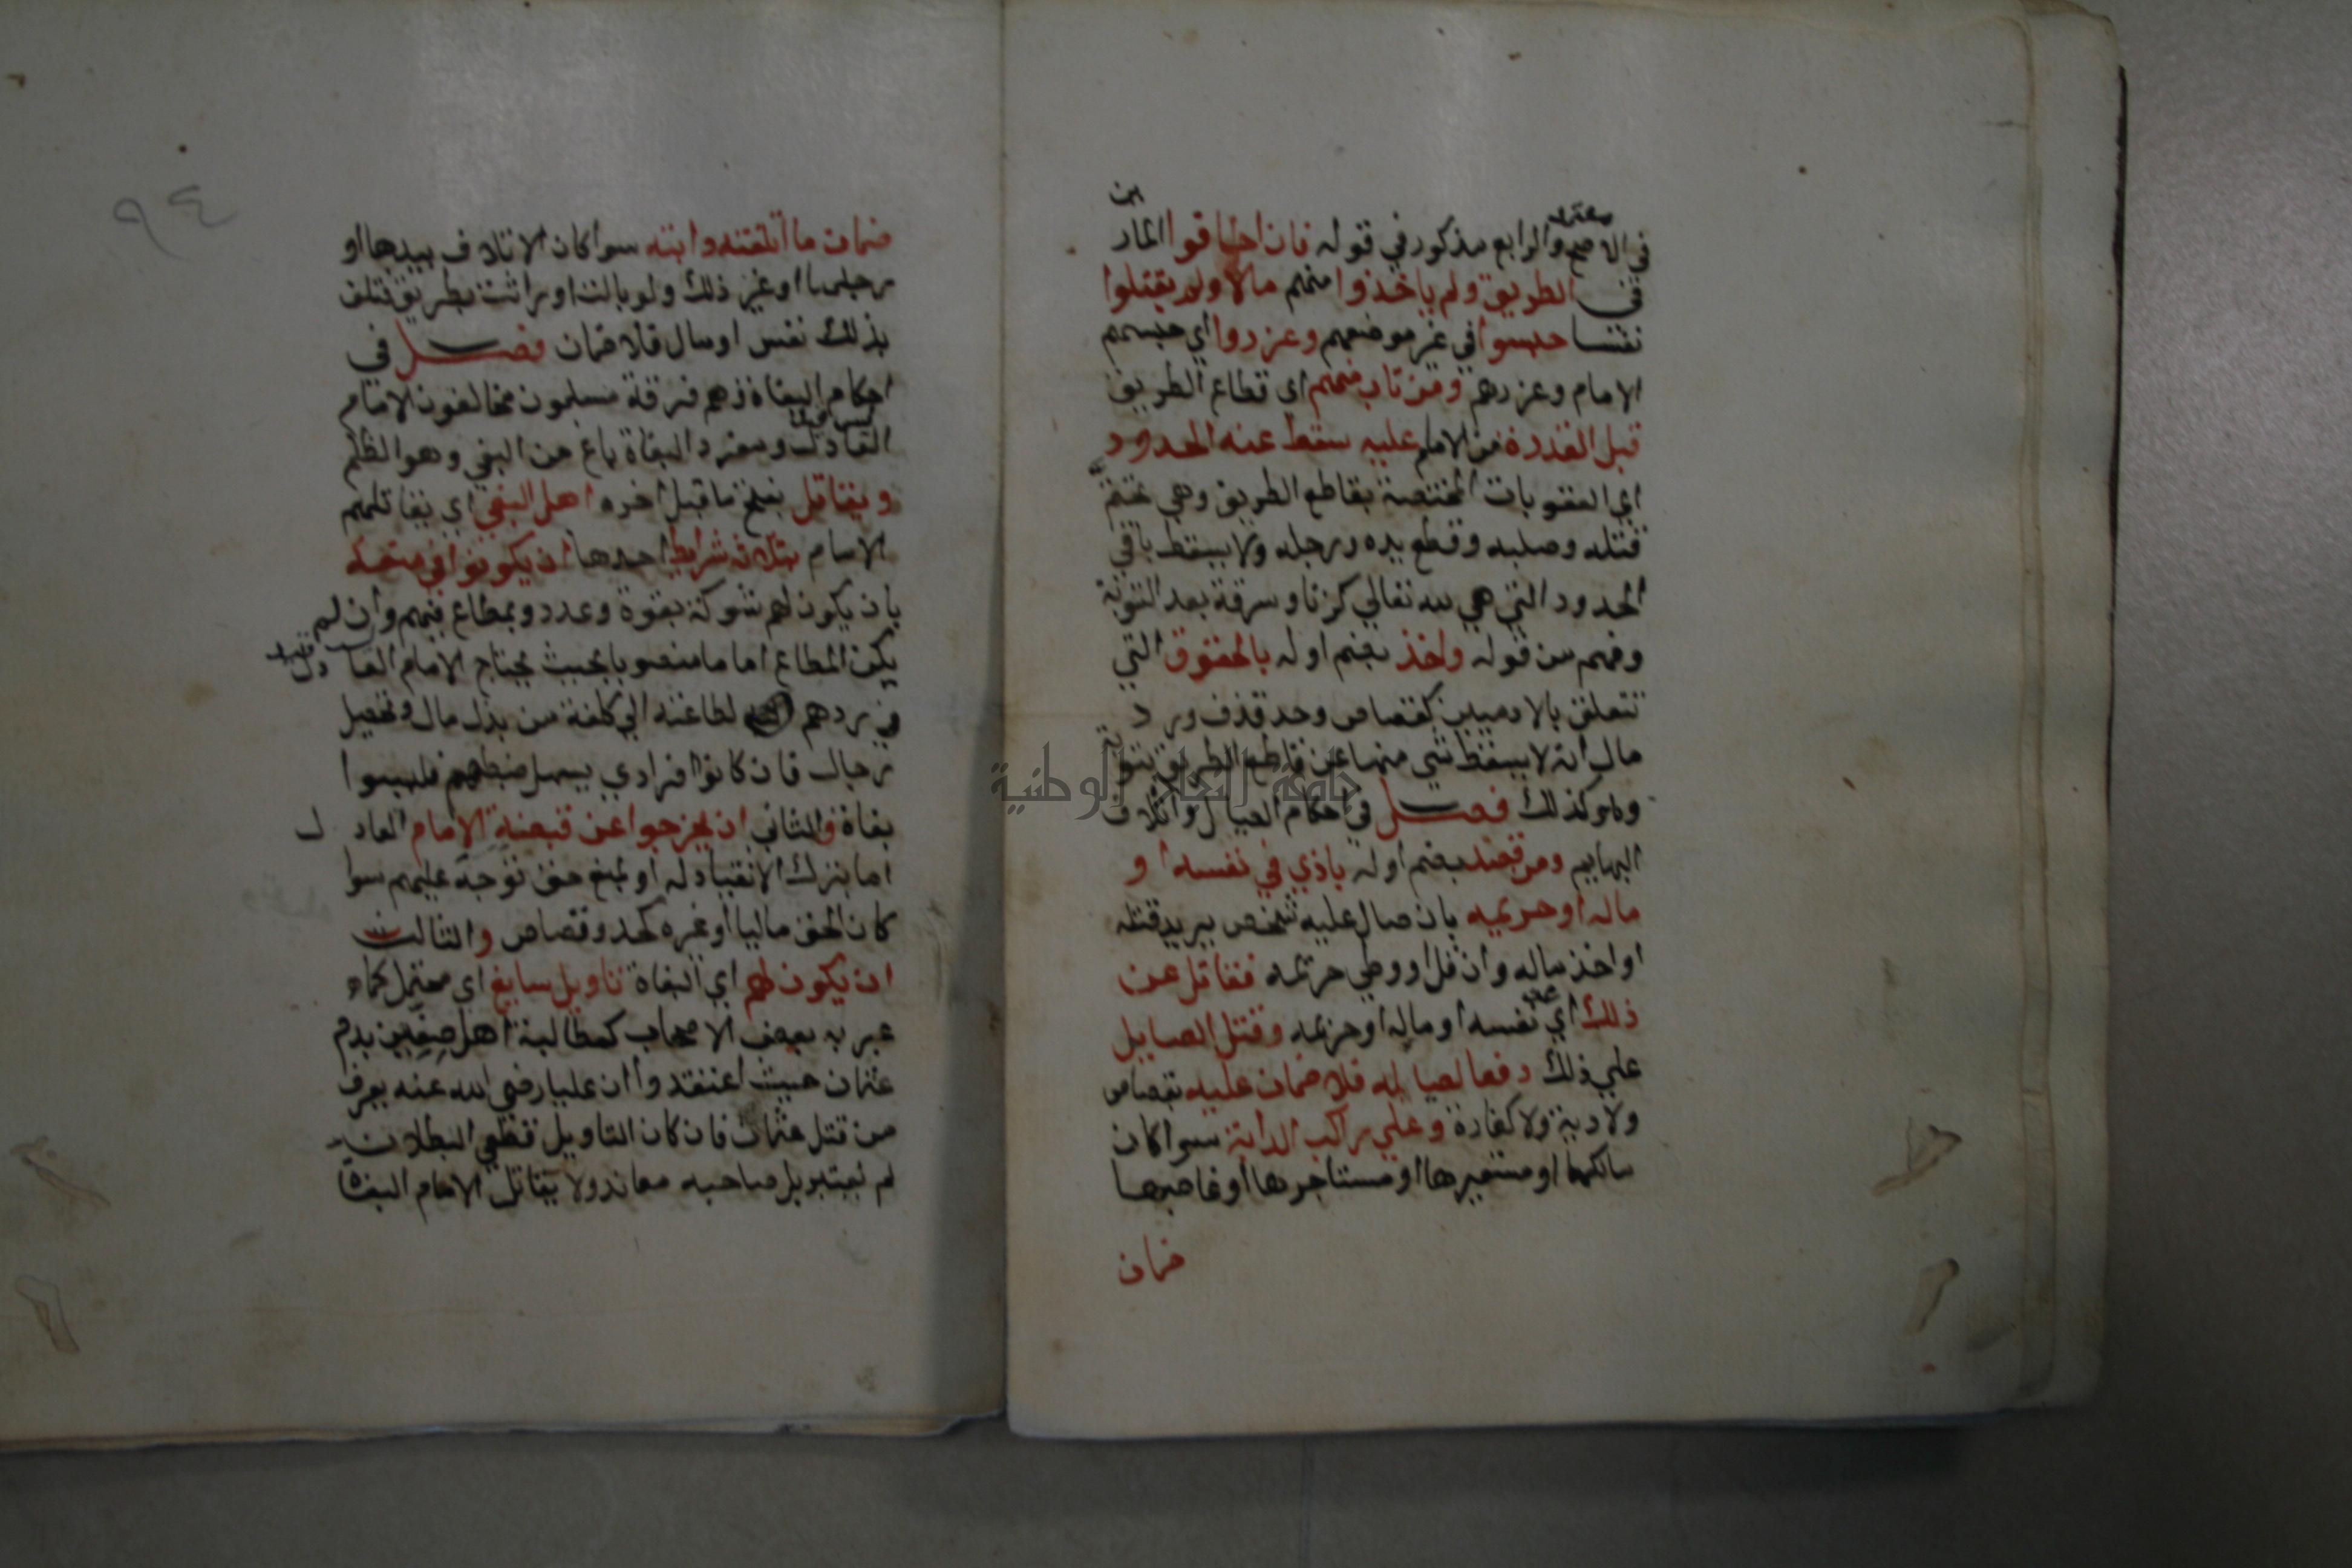 في الاصح والرابع مذكور في قوله فان اخافوا المار
ين
في الطريق ولم ياخذوا منهم مالا ولم يقتلوا
نفسا حبسوا في غير موضعهم وعزروا اي حبسهم
الامام وعزرهم ومن تاب منهم اي قطاع الطريق
قبل القدرة من الامام عليه سقط عنه الحدود
اي العقوبات المختصة بقاطع الطريق وهي تحتم
قتله وصلبه وقطع يده ورجله ولا يسقط باقي
الحدود التي هي لله تعالي كزنا وسرقة بعد التوبة
وفهم من قوله واخذ بضم اوله بالحقوق التي
تتعلق بالادميين كقصاص وحد قذف ورد
مال انه لا يسقط شي منها عن قاطع الطريق بتوبة
وهو كذلك فصل في احكام الصيال واتلاف
البهايم ومن قصد بضم اوله باذي في نفسه او
ماله او حريمه بان صال عليه شخص يريد قتله
او اخذ ماله وان قل او وطي حريمه فقاتل عن
ذلك اي عن نفسه او ماله او حريمه وقتل الصايل
علي ذلك دفعا لصياله فلا ضمان عليه بقصاص
ولا دية ولا كفارة وعلي راكب الدابة سوا كان
مالكها او مستعيرها او مستاجرها او غاصبها
ضمان
٩٤
ضمان ما اتلفته دابته سوا كان الاتلاف بيدها او
رجلها او غير ذلك ولو بالت او راثت بطريق فتلف
بذلك نفس او مال فلا ضمان فصل في
احكام البغاة وهم فرقة مسلمون مخالفون لامام
العادل ومفرد البغاة باغ من البغي وهو الظلم
ويقاتل بفتح ما قبل اخره اهل البغي اي يقاتلهم
الامام بثلاثة شرايط احدها ان يكونوا في منعة
بان يكون لهم شوكة بقوة وعدد وبمطاع فيهم وان لم
يكن المطاع اماما منصوبا بحيث يحتاج الامام العادل
في ردهم لطاعته الي كلفة من بذل مال وتحصيل
رجال فان كانوا افرادي يسهل ضبطهم فليسوا
بغاة والثاني ان يخرجوا عن قبضة الامام العادل
اما بترك الانقياد له او بمنع حق توجه عليهم سوا
كان الحق ماليا او غيره كحد وقصاص والثالث
ان يكون لهم اي البغاة تاويل سايغ اي محتمل كما
عبر به بعض الاصحاب كمطالبة اهل صفين بدم
عثمان حيث اعتقدوا ان عليا رضي الله عنه يعرف
من قتل عثمان فان كان التاويل قطعي البطلان
لم يعتبر بل صاحبه معاند ولا يقاتل الامام البغاة
جامعة النجاح الوطنية